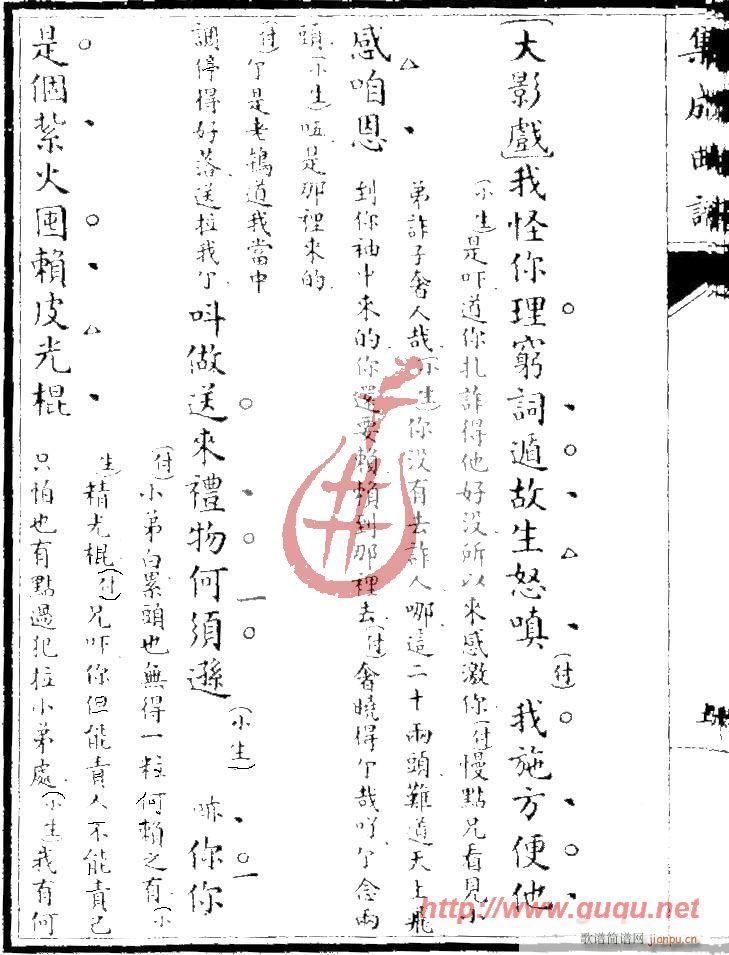 集成曲譜
(大影戲)我怪你理窮詞遁故生怒嗔(付)我施方便他
(小生)是吓道你扎詐得他好沒所以來感激你(付)慢點兄看見小
弟詐子奢人哉(小生)你沒有去詐人哪這二十兩頭難道天上飛
感咱恩到你袖中來的你還要賴賴到那裡去(付)奢曉得个哉吖个念兩
頭(小生)啞是那裡來的
(付)个是老鴇道我當中
調停得好落送拉我个叫做送來禮物何須遜(小生)㖿你你
(付)小弟白累頭也無得一粒何賴之有(小
生)精光棍(付)兄吓你但能責人不能責己
是個紮火囤賴皮光棍只怕也有點過犯拉小弟處(小生)我有何
http://www.guqu.net
歌谱简谱网 jianpu.cn